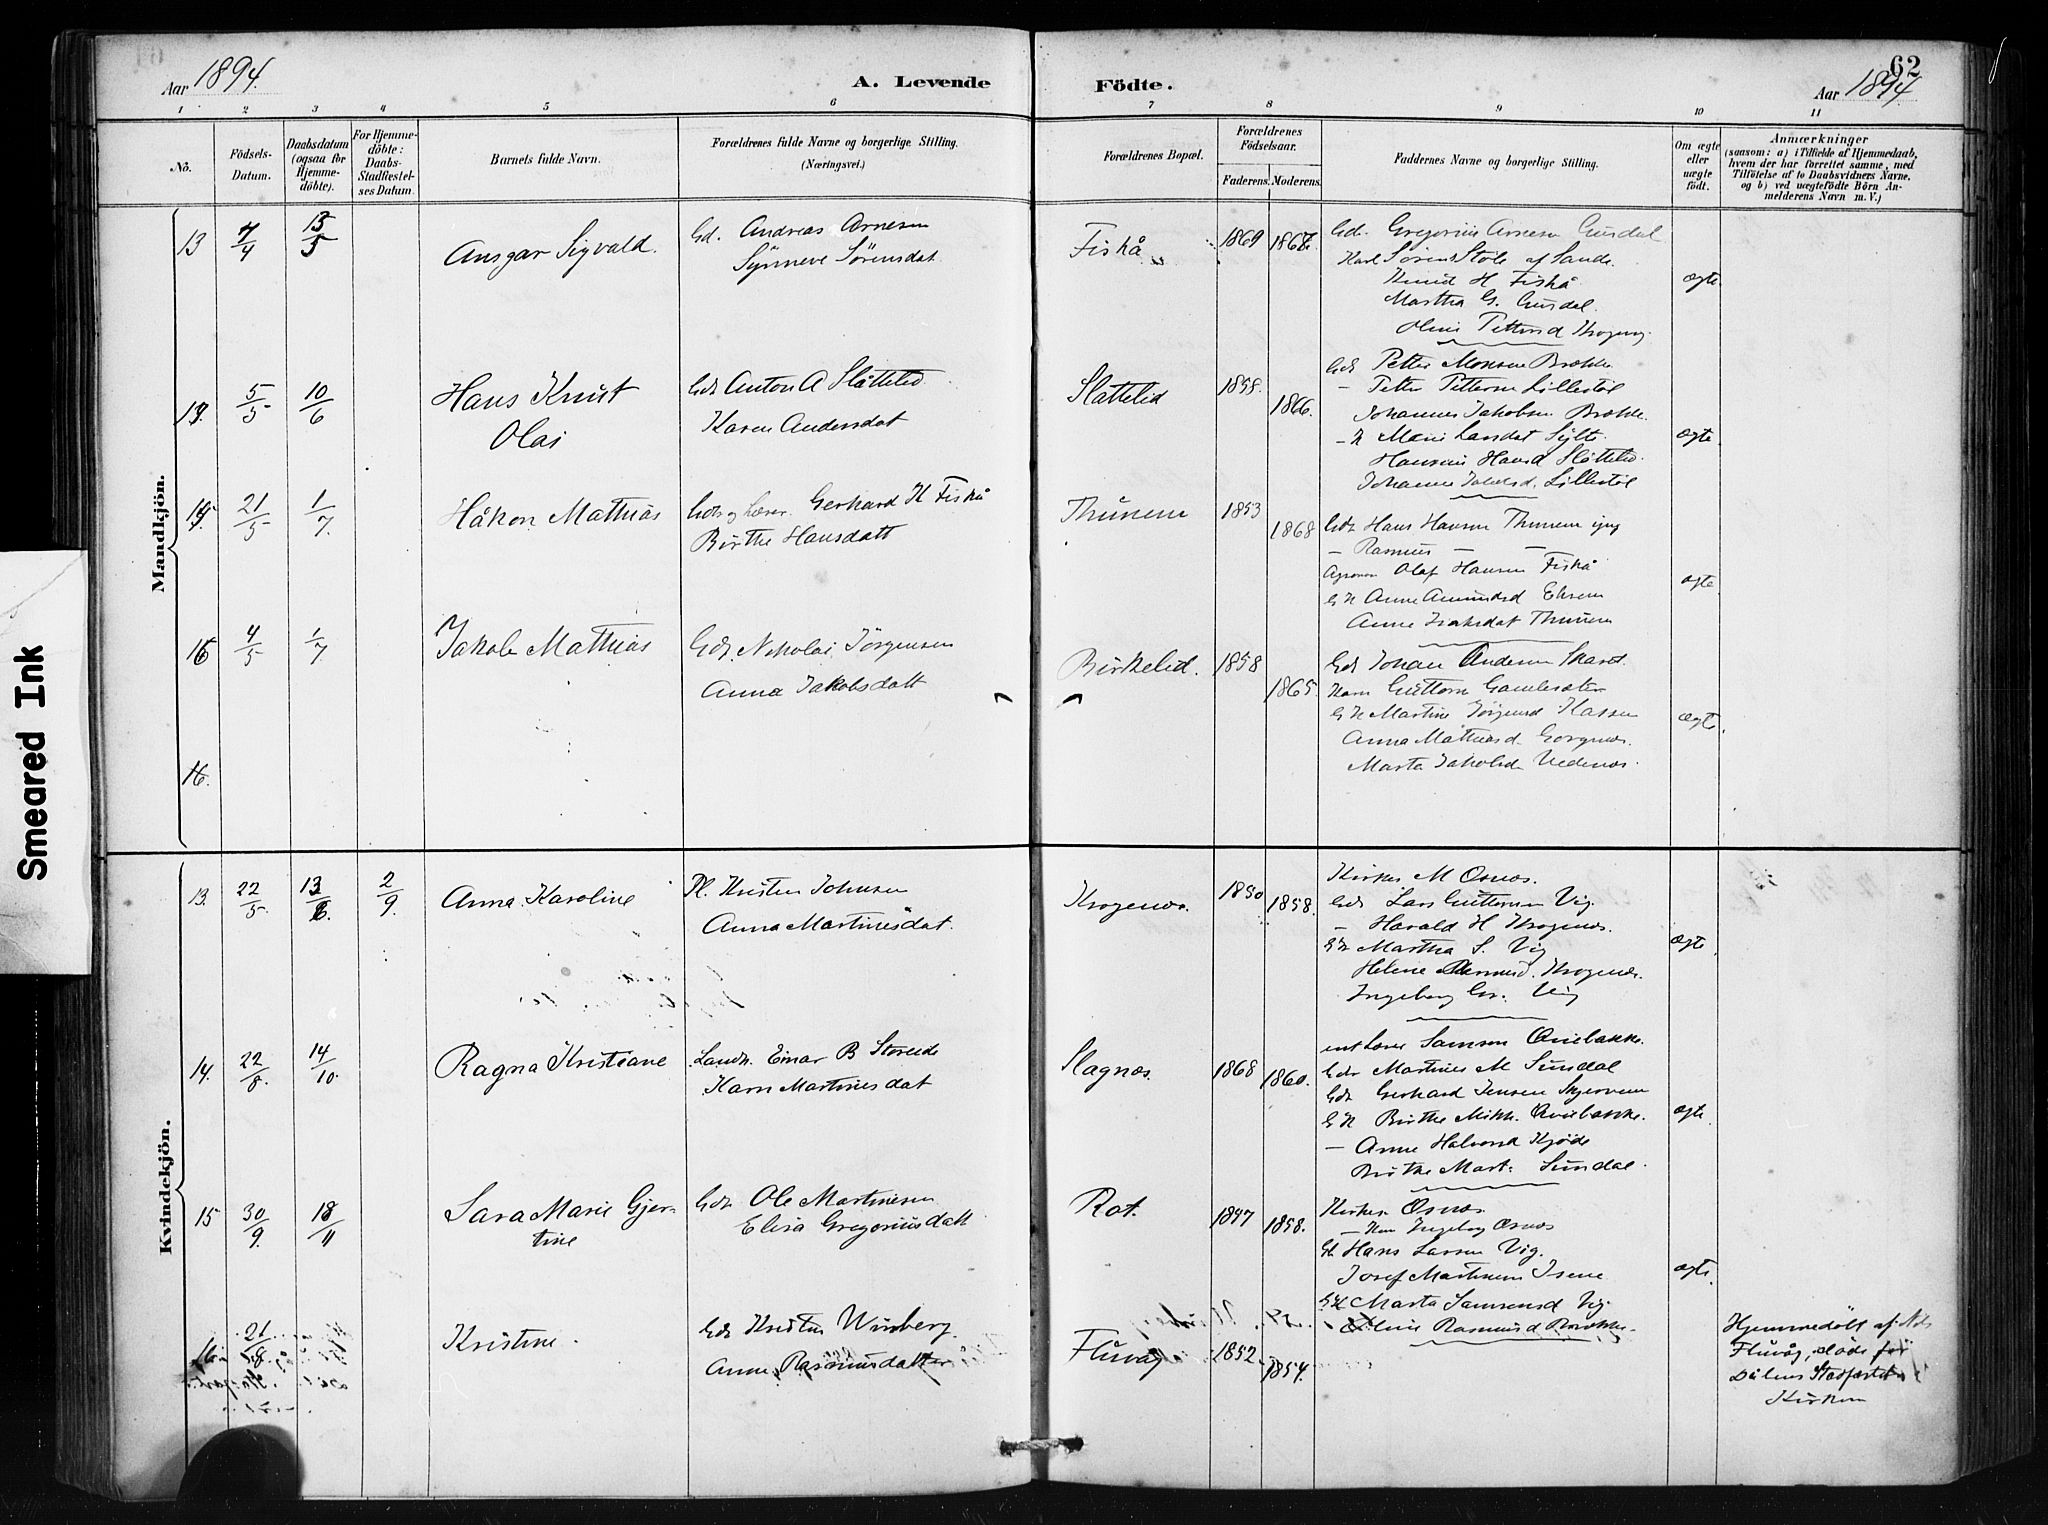 Smeared Ink
Aar 1894.
A. Levende Födte.
62
Aar 1894
1 2 3 4 5 6 7 8 9 10 11
No.
Födsels-Datum.
Daabsdatum (ogsaa for Hjemme-döbte).
For Hjemme-döbte: Daabs-Stadfæstel-ses Datum.
Barnets fulde Navn.
Forældrenes fulde Navne og borgerlige Stilling. (Næringsvei.)
Forældrenes Bopæl.
Forældrenes Födselsaar.
Faderens. Moderens.
Faddernes Navne og borgerlige Stilling.
Om ægte eller uægte födt.
Anmærkninger
(saasom: a) i Tilfælde af Hjemmedaab, hvem der har forrettet samme, med Tilföielse af to Daabsvidners Navne, og b) ved uægtefödte Börn Anmelderens Navn m. V.)
Mandkjön.
13 7/4 13/5 Ansgar Sigvald. Gd. Andreas Arnesen
Synneve Sörensdat.
Fiskå 1869 1867.
Gdr. Gregorius Arnesen Gusdal
Karl Sörens Stöle af Sande.
Knud H Fiskå
Martha G. Gusdal.
Oline Petters d
ægte
5/5 10/6 Hans Knut
Olai
Gdr Anton A Slåttelid.
Karen Andersdat
Slåttelid 1858. 1866.
Gdr Petter Monsen Brække
- Petter Pettersen Lillestöl
Johannes Jakobsen Brække.
- K Marie Larsdat Sylte.
Hansine Hansd Slåttelid.
Lillestöl
ægte
21/5 1/7 Håkon Mathias
Gdr og Lærer. Gerhard H Fiskå
Birthe Hansdatt
Thunem 1853 1868
Gdr Hans Hansen Thunem yng
- Rasmus - -
Agronom Olaf Hansen Fiskå
G K Anne Amundsd
Anne Thunem
ægte
15 4/5 1/7 Jakob Mathias
Gdr. Nikolai Jörgensen
Anna Jakobsdatt
Birkelid. 1858 1865.
Gdr Johan Andersen Skare.
Karn Guttorm
G K Martine Jörgensd
Anna Mathiasd
Marta Jakobsd
ægte
16.
Kvindekjön.
13. 22/5. 13/6. 2/9. Anna Karoline
Pl. Kristen Johnsen
Anna Martinusdat.
Krogenæs. 1850 1858.
Kirkes. M Osnæs.
Gdr Lars Guttormsen Vig.
- Harald H Krogenæs.
GK Martha S. Vig
Helene Krogenæs.
Ingeborg Gr. Vig
ægte
14. 22/8. 14/10. Ragna Kristiane
Landh. Einar B Storeide
Karn Martinusdat
Slagnæs. 1868 1860.
Samson
Gdr Martinus M Sundal
Gdr Gerhard Jensen Skjervem
G K Birthe Mikk.
- Anne Halvorsd Kjöde
Birthe Mart. Sundal.
ægte
15 30/9. 18/11 Sara Marie Gjer-
tine
Gdr Ole Martinusen
Elisa Gregoriusdatt
Rot. 1847 1858.
Kirkes. Osnæs.
- Kon Ingeborg Osnæs
Gd Hans Larsen Vig.
Josef Martinusen Isene
GK Marta Samsonsd Vig.
Oline Rasmusd Brække.
ægte.
16. 21/8. Kristine.
Gdr Kristen Winberg.
Anne Rasmusdatter
Flåvåg 1852 1854.
Hjemmedöbt af
Flåvåg, död för
Dåbens Stadfæstelse i
Kirken